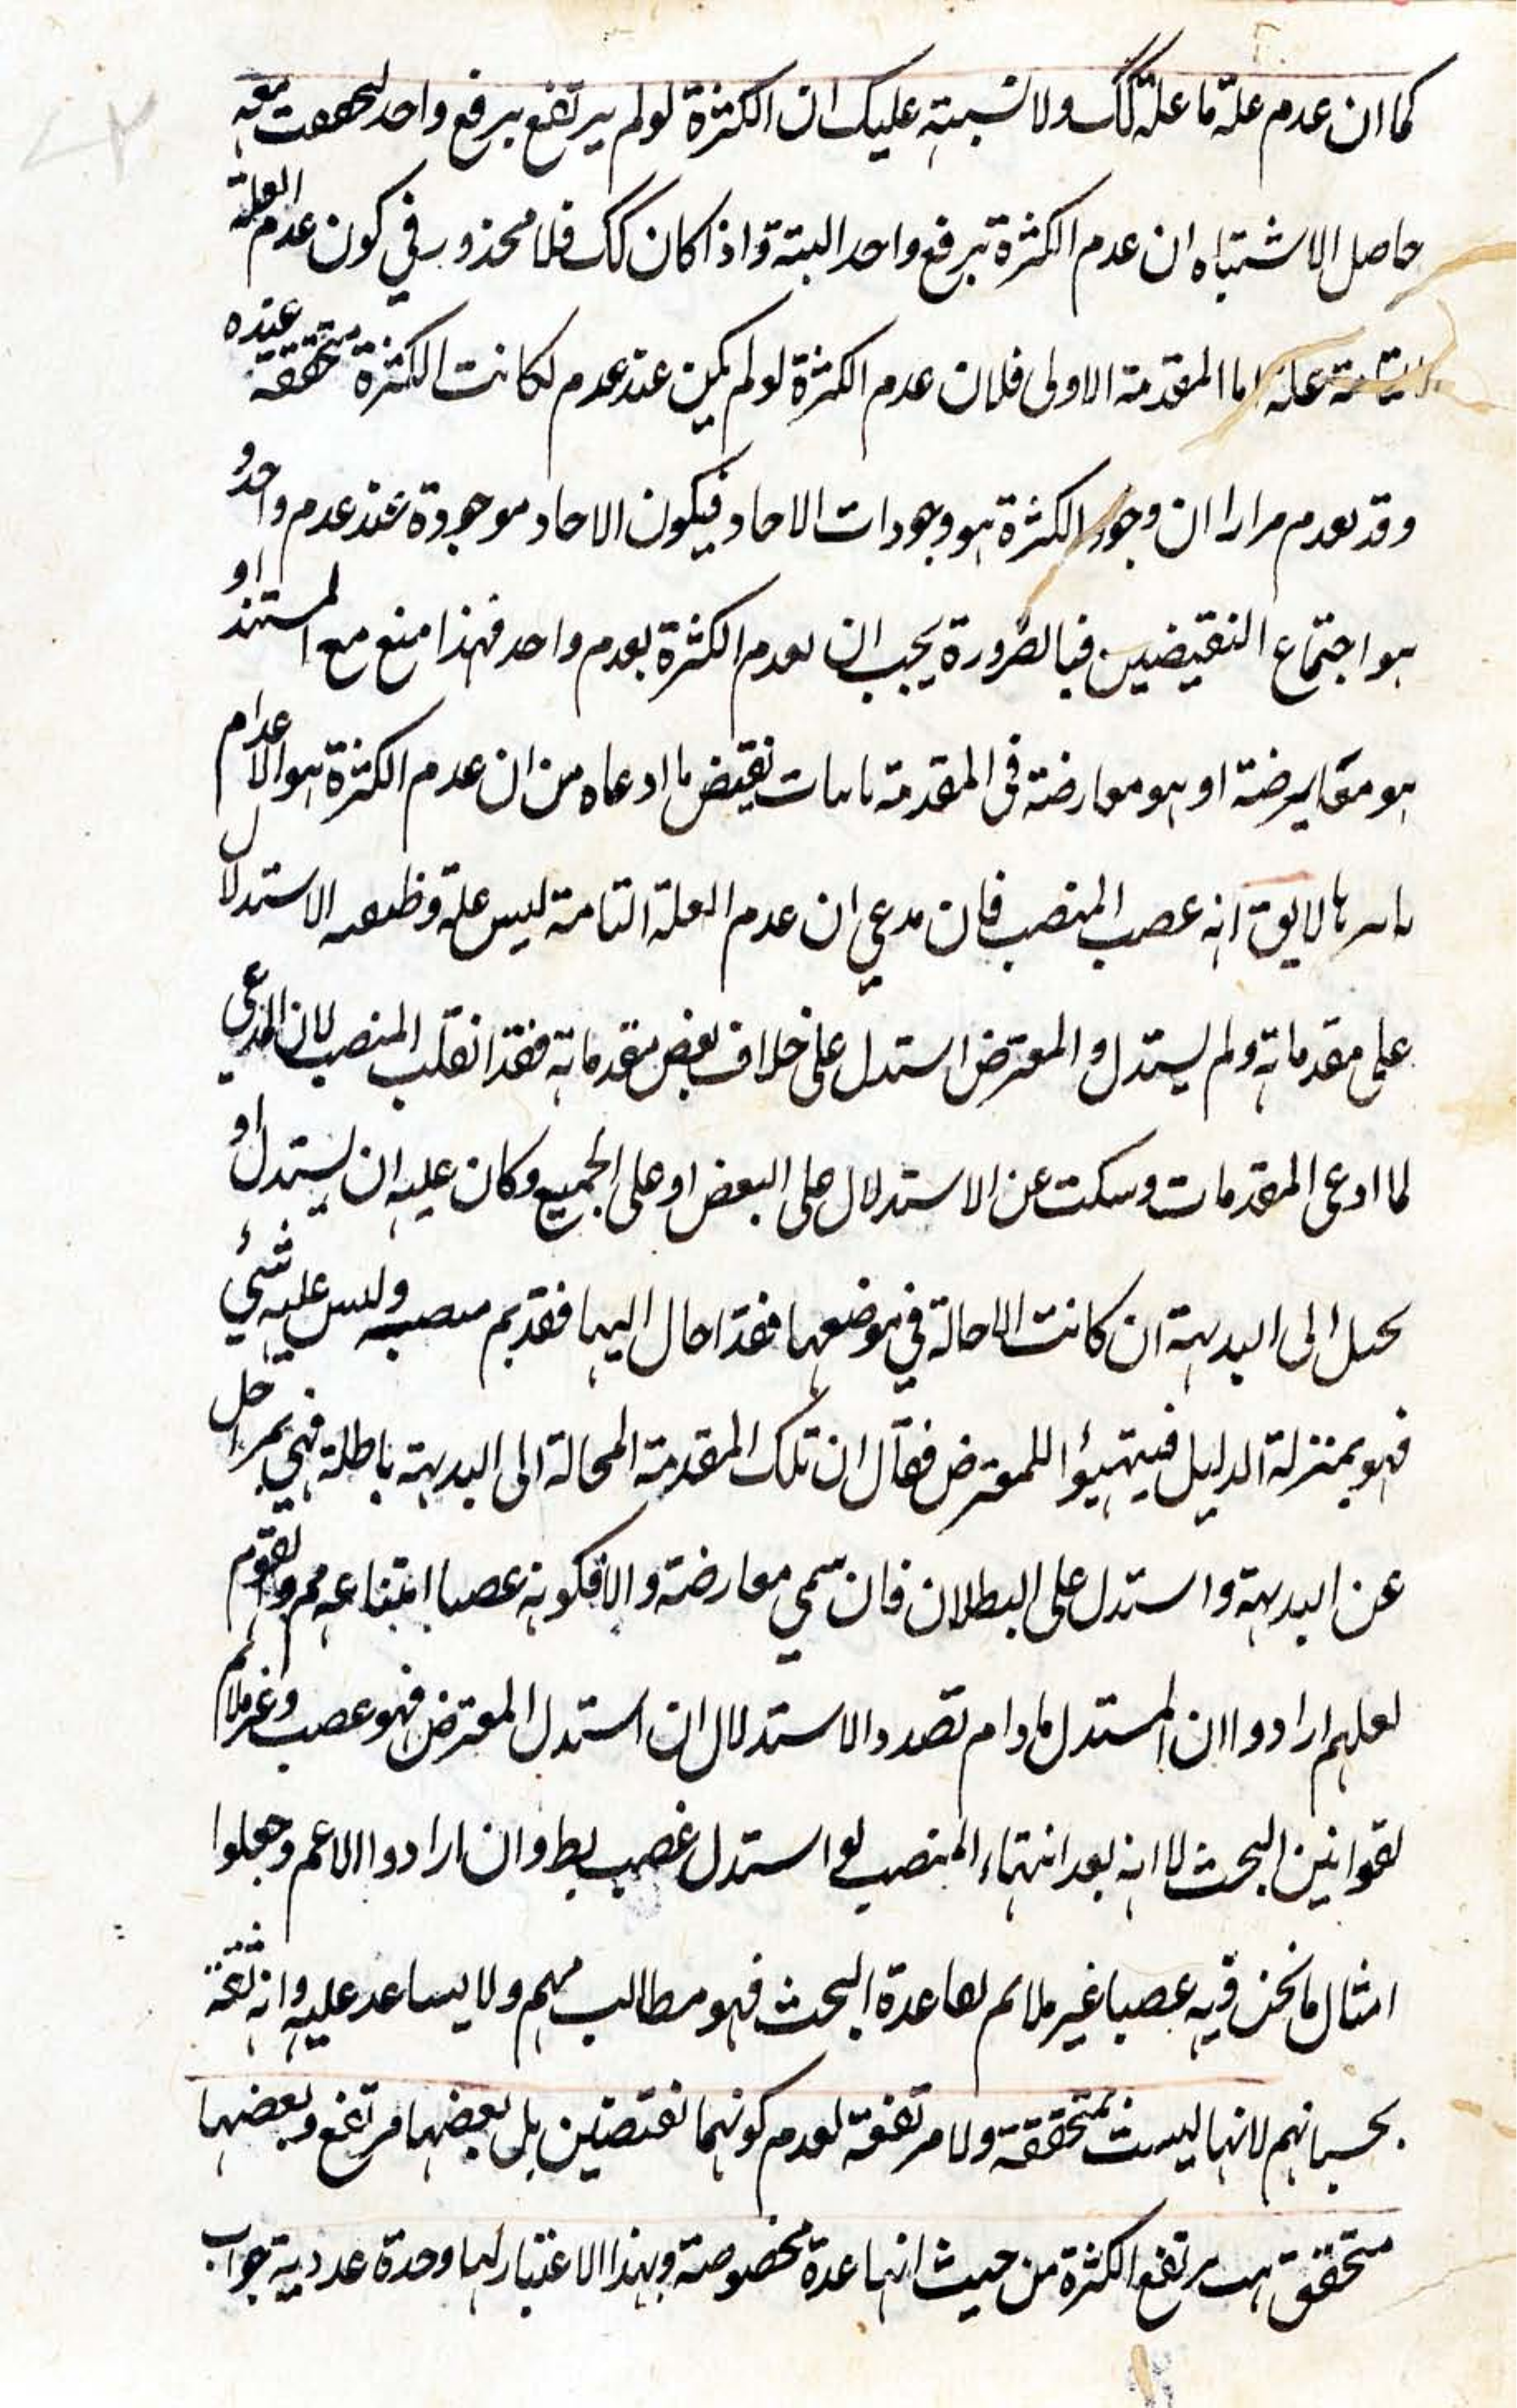 كما ان عدم علة ما علة كك ولا تشبته عليك ان الكثرة لو لم يرتفع برفع واحد لتحققت معه
حاصل الاشتباه ان عدم الكثرة برفع واحد البتة واذا كان كك فلا محذور في كون عدم العلة
التامة علة اما المقدمة الاولى فلان عدم الكثرة لو لم يكن عند عدم لكانت الكثرة متحققة عنده
وقد تعدم مرارا ان وجود الكثرة هو وجودات الاحاد فيكون الاحاد موجودة عند عدم واحد و
هو اجتماع النقيضين فبالضرورة يجب ان تعدم الكثرة بعدم واحد فهذا منع مع المستند او
هو معارضة او هو معارضة في المقدمة باثبات نقيض ما ادعاه من ان عدم الكثرة هو الاعدام
باسرها لا يق انه غصب المنصب فان مدعي ان عدم العلة التامة ليس علة وظيفته الاستدلال
على مقدماته ولم يستدل والمعترض استدل على خلاف بعض مقدماته فقد انقلب المنصب لان المدعي
لما ادعى المقدمات وسكت عن الاستدلال على البعض او على الجميع وكان عليه ان يستدل او
يحيل الى البديهة ان كانت الاحالة في موضعها فقد احال اليها فقد تم منصبه وليس عليه شئ
فهو بمنزلة الدليل فيتهيؤا للمعترض فقال ان تلك المقدمة المحالة الى البديهة باطلة فهي بمراحل
عن البديهة واستدل على البطلان فان سمي معارضة والا فكونه غصبا امتناعه مم والقوم
لعلهم ارادوا ان المستدل ما دام تصدد الاستدلال ان استدل المعترض فهو غصب وغير ملائم
لقوانين البحث لا انه بعد انتهاء المنصب لو استدل غصب بط وان ارادوا الاعم وجعلوا
امثال ما نحن فيه غصبا غير ملائم لقاعدة البحث فهو مطالب مهم ولا يساعد عليه وانه
بحسبانهم لانها ليست بمتحققة ولا مرتفعة لعدم كونهما نقيضين بل بعضها مرتفع وبعضها
متحقق مرتفع الكثرة من حيث انها عدة مخصوصة وبهذا الاعتبار لها وحدة عددية جواب